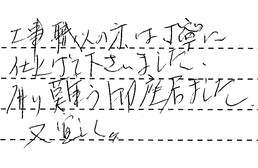 工事職人の方は丁寧に
仕上げて下さいました、
有り難う御座居ました
又宜しく。